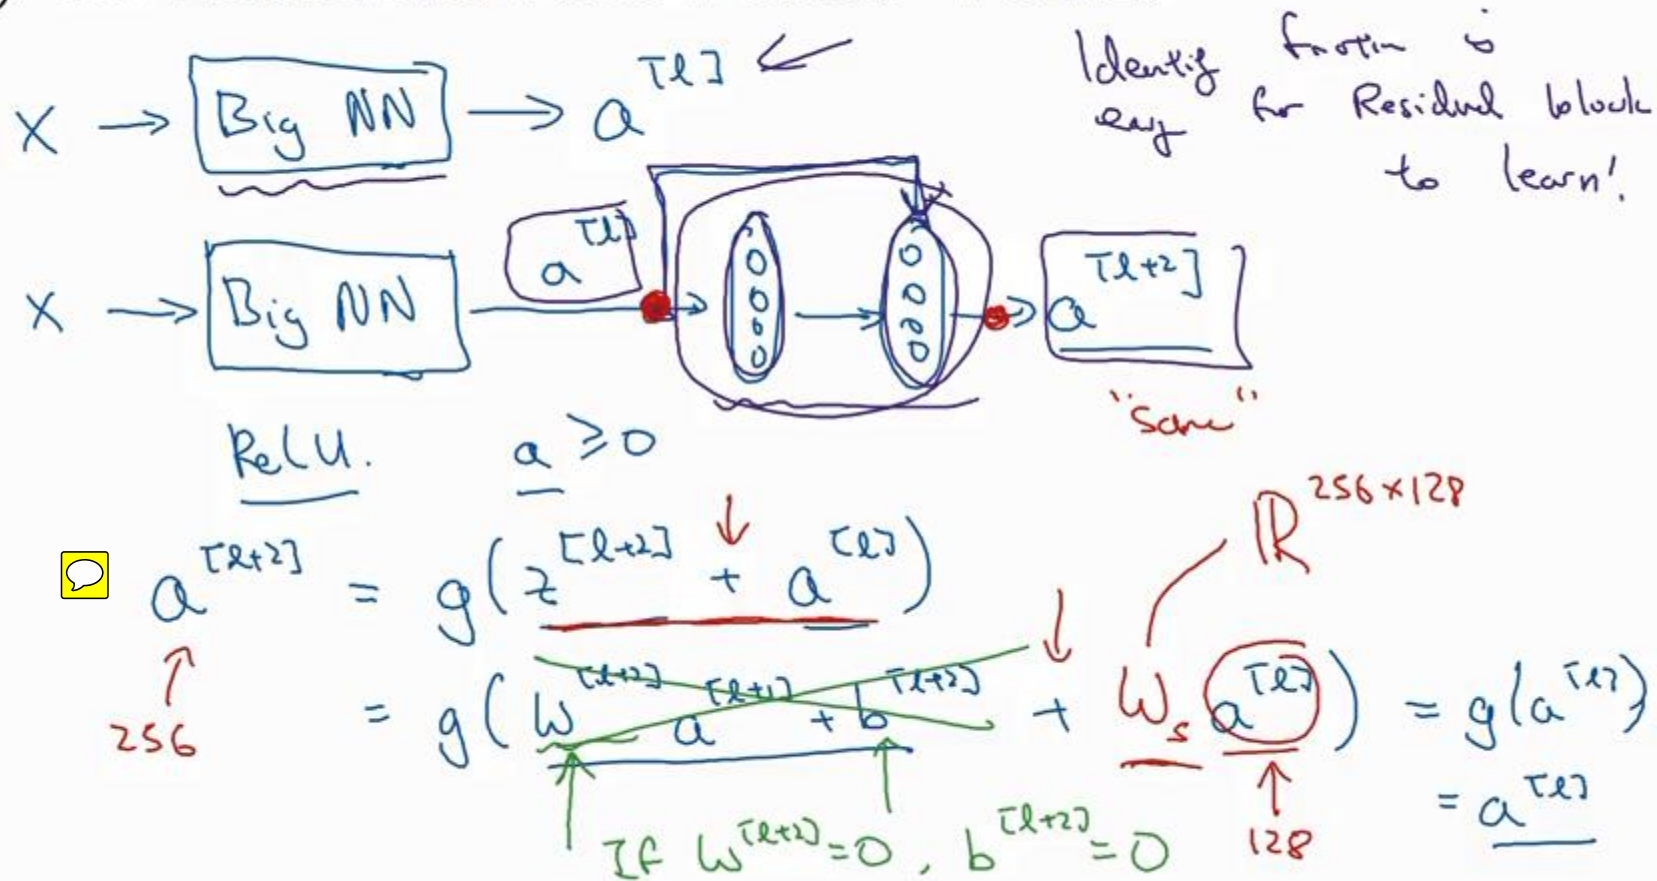 X → Big NN → a^[l] ←
Identity function is
easy for Residual block
to learn!
X → Big NN a^[l] → → → a^[l+2]
"Same"
ReLU. a ≥ 0
a^[l+2] = g(z^[l+2] + a^[l])
R^256×128
256
= g(W^[l+2] a^[l+1] + b^[l+2] + W_s a^[l]) = g(a^[l])
= a^[l]
If W^[l+2] = 0, b^[l+2] = 0
128